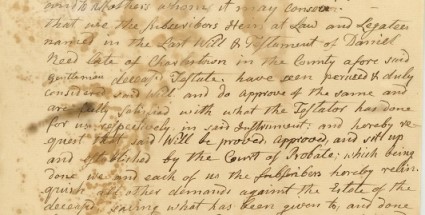 and to all others whom it may concern
that we the subscribers Heirs at Law and Legatees
named in the Last Will & Testament of Daniel
Need late of Charlestown in the County afore said
Gentleman deceasd Testate. have seen perused & duly
considerd said Will and do approve of the same and
are fully satisfied with what the Testator has done
for us respectively, in said Instrument; and hereby re
quest that said Will be proved, approved, and set up
and established by the Court of Probate; which being
done we and each of us the subscribers hereby relin
quish all other demands against the Estate of the
deceasd, saving what has been given to, and done